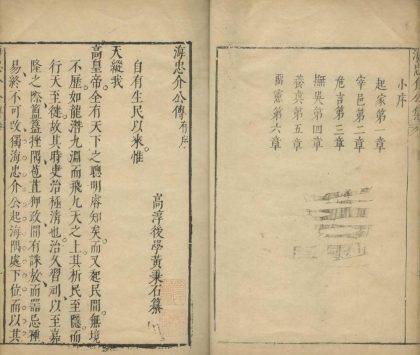 小序
起家第一章
宰邑第二章
危言第三章
撫吳第四章
養真第五章
憲第六章
海忠介公傳有序
高淳後學黃秉石纂
自有生民以來惟
天縱我
高皇帝全有天下之聰明睿知矣而又起民間無境
不歷如龍潛九淵而飛九天之上其析民至隱而
行天至徤故其時吏治極清也治久習玩以至嘉
隆之際簠簋挫隅苞苴狎政間有誅放而器忌種
易終不可改獨海忠介公起海隅處下位而以其